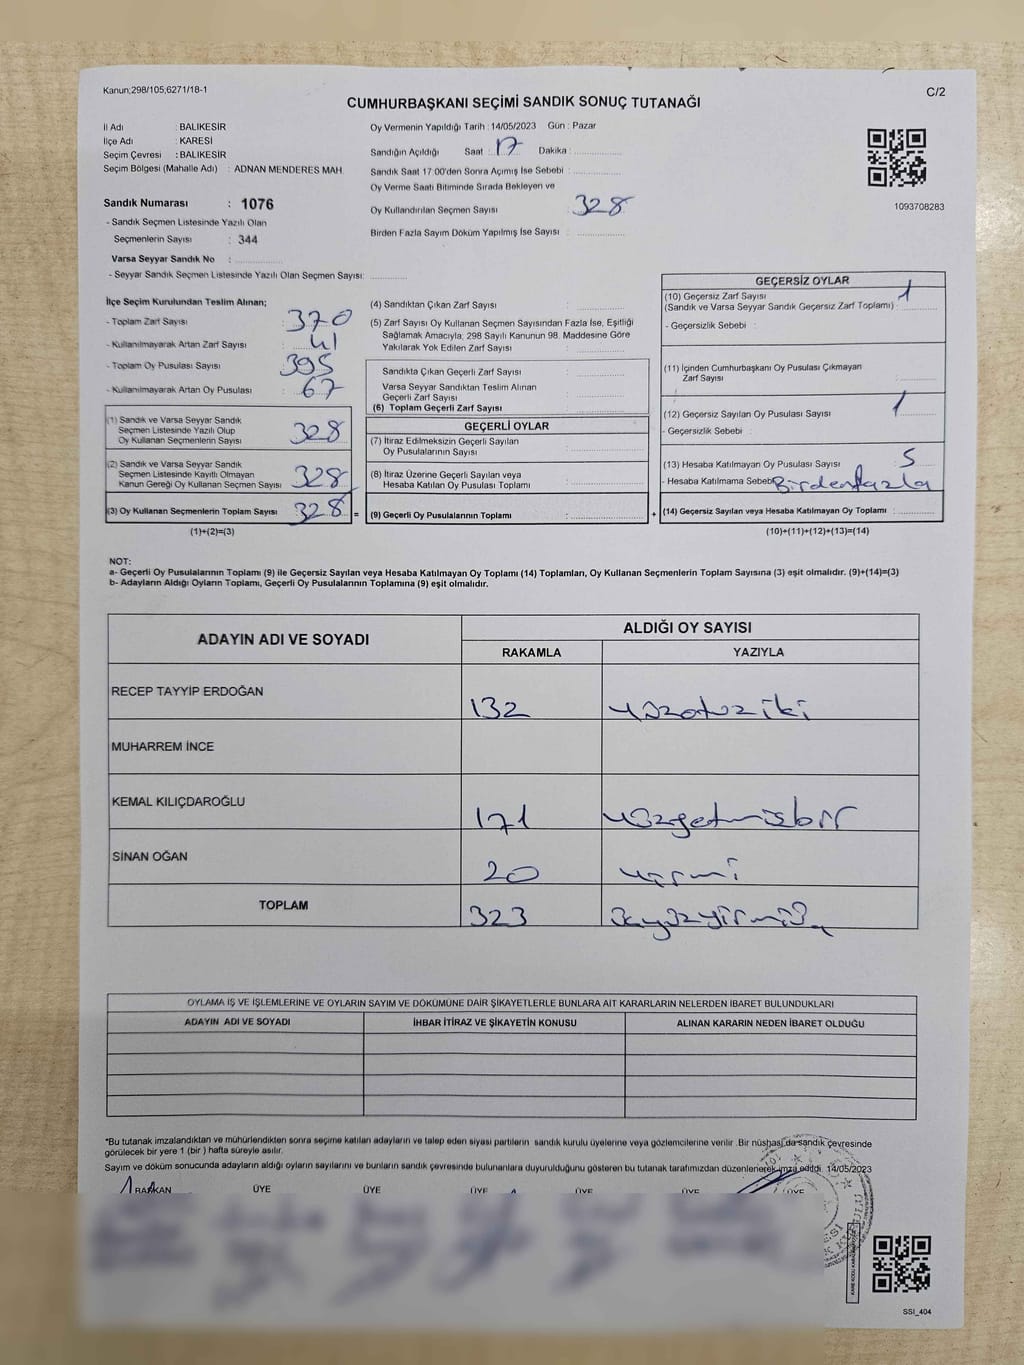 Kanun;298/105;6271/18-1
C/2
CUMHURBAŞKANI SEÇİMİ SANDIK SONUÇ TUTANAĞI
İl Adı : BALIKESİR
İlçe Adı : KARESİ
Seçim Çevresi : BALIKESİR
Seçim Bölgesi (Mahalle Adı) : ADNAN MENDERES MAH.
Sandık Numarası : 1076
- Sandık Seçmen Listesinde Yazılı Olan
Seçmenlerin Sayısı : 344
Varsa Seyyar Sandık No :
- Seyyar Sandık Seçmen Listesinde Yazılı Olan Seçmen Sayısı:
Oy Vermenin Yapıldığı Tarih : 14/05/2023 Gün : Pazar
Sandığın Açıldığı Saat : 17 Dakika :
Sandık Saat 17:00'den Sonra Açımış İse Sebebi :
Oy Verme Saati Bitiminde Sırada Bekleyen ve
Oy Kullandırılan Seçmen Sayısı : 328
Birden Fazla Sayım Döküm Yapılmış İse Sayısı :
1093708283
İlçe Seçim Kurulundan Teslim Alınan;
- Toplam Zarf Sayısı : 370
- Kullanılmayarak Artan Zarf Sayısı : 41
- Toplam Oy Pusulası Sayısı : 395
- Kullanılmayarak Artan Oy Pusulası : 67
(1) Sandık ve Varsa Seyyar Sandık
Seçmen Listesinde Yazılı Olup
Oy Kullanan Seçmenlerin Sayısı : 328
(2) Sandık ve Varsa Seyyar Sandık
Seçmen Listesinde Kayıtlı Olmayan
Kanun Gereği Oy Kullanan Seçmen Sayısı : 328
(3) Oy Kullanan Seçmenlerin Toplam Sayısı : 328
(1)+(2)=(3)
(4) Sandıktan Çıkan Zarf Sayısı :
(5) Zarf Sayısı Oy Kullanan Seçmen Sayısından Fazla İse, Eşitliği
Sağlamak Amacıyla; 298 Sayılı Kanunun 98. Maddesine Göre
Yakılarak Yok Edilen Zarf Sayısı :
Sandıkta Çıkan Geçerli Zarf Sayısı :
Varsa Seyyar Sandıktan Teslim Alınan
Geçerli Zarf Sayısı :
(6) Toplam Geçerli Zarf Sayısı :
GEÇERLİ OYLAR
(7) İtiraz Edilmeksizin Geçerli Sayılan
Oy Pusulalarının Sayısı :
(8) İtiraz Üzerine Geçerli Sayılan veya
Hesaba Katılan Oy Pusulası Toplamı :
= (9) Geçerli Oy Pusulalarının Toplamı : +
GEÇERSİZ OYLAR
(10) Geçersiz Zarf Sayısı 1
(Sandık ve Varsa Seyyar Sandık Geçersiz Zarf Toplamı) :
- Geçersizlik Sebebi :
(11) İçinden Cumhurbaşkanı Oy Pusulası Çıkmayan
Zarf Sayısı :
(12) Geçersiz Sayılan Oy Pusulası Sayısı : 1
- Geçersizlik Sebebi :
(13) Hesaba Katılmayan Oy Pusulası Sayısı : 5
- Hesaba Katılmama Sebebi Birden fazla
(14) Geçersiz Sayılan veya Hesaba Katılmayan Oy Toplamı :
(10)+(11)+(12)+(13)=(14)
NOT:
a- Geçerli Oy Pusulalarının Toplamı (9) ile Geçersiz Sayılan veya Hesaba Katılmayan Oy Toplamı (14) Toplamları, Oy Kullanan Seçmenlerin Toplam Sayısına (3) eşit olmalıdır. (9)+(14)=(3)
b- Adayların Aldığı Oyların Toplamı, Geçerli Oy Pusulalarının Toplamına (9) eşit olmalıdır.
ADAYIN ADI VE SOYADI
ALDIĞI OY SAYISI
RAKAMLA YAZIYLA
RECEP TAYYİP ERDOĞAN 132 yüzotuziki
MUHARREM İNCE
KEMAL KILIÇDAROĞLU 171 yüzyetmişbir
SİNAN OĞAN 20 yirmi
TOPLAM 323 üçyüzyirmiüç
OYLAMA İŞ VE İŞLEMLERİNE VE OYLARIN SAYIM VE DÖKÜMÜNE DAİR ŞİKAYETLERLE BUNLARA AİT KARARLARIN NELERDEN İBARET BULUNDUKLARI
ADAYIN ADI VE SOYADI İHBAR İTİRAZ VE ŞİKAYETİN KONUSU ALINAN KARARIN NEDEN İBARET OLDUĞU
*Bu tutanak imzalandıktan ve mühürlendikten sonra seçime katılan adayların ve talep eden siyasi partilerin sandık kurulu üyelerine veya gözlemcilerine verilir. Bir nüshası da sandık çevresinde
görülecek bir yere 1 (bir) hafta süreyle asılır.
Sayım ve döküm sonucunda adayların aldığı oyların sayılarını ve bunların sandık çevresinde bulunanlara duyurulduğunu gösteren bu tutanak tarafımızdan düzenlenerek imza edildi. 14/05/2023
BAŞKAN ÜYE ÜYE ÜYE ÜYE ÜYE ÜYE
SSI_404